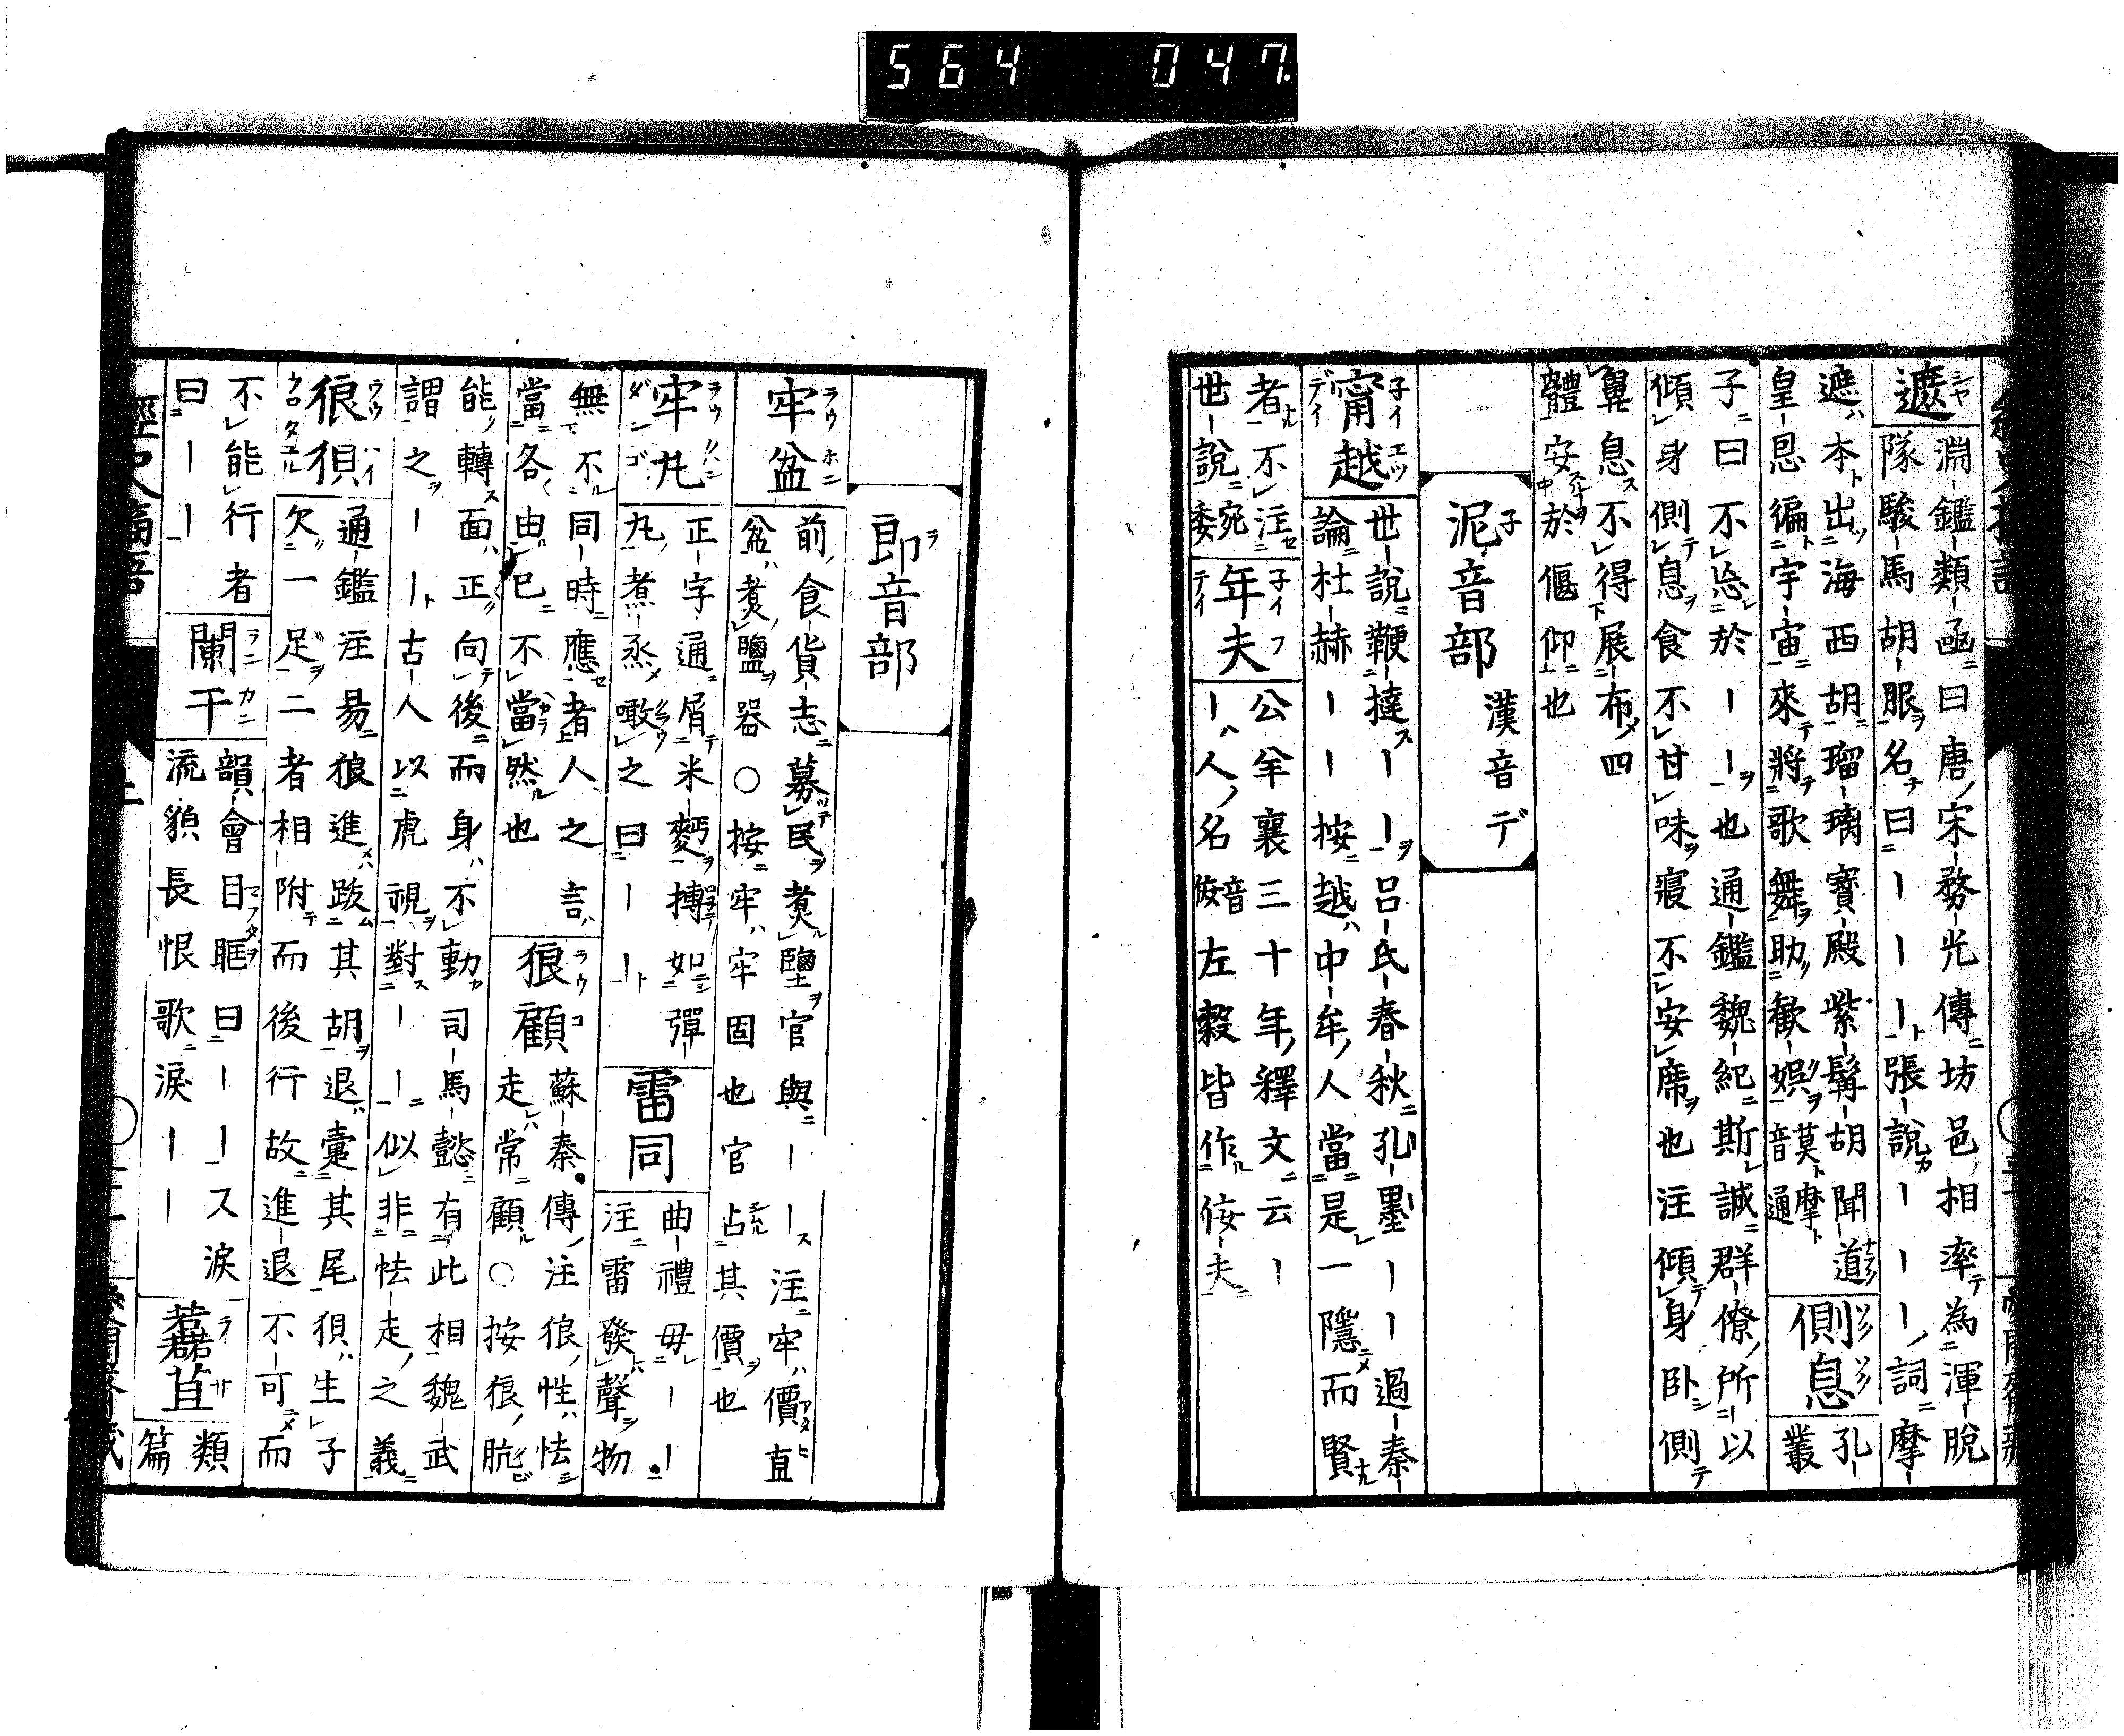 564 047
遮
シヤ
淵鑑類函曰唐宋務光傳坊邑相率為渾脫
隊駿馬胡服名曰｜｜｜張說｜｜｜詞摩
遮本出海西胡瑠璃寶殿紫髯胡聞道
皇恩徧宇宙來將歌舞助歡娛莫摩音通
側息
孔
叢
子曰不忌於｜｜也通鑑魏紀斯誠群僚所以
傾身側息食不甘味寢不安席也注傾身臥側
鼻息不得展布四
體安於偃仰也
泥音部 漢音デ
甯越
子イエツ
デイ
世說鞭撻｜｜呂氏春秋孔墨｜｜過秦
論杜赫｜｜按越中牟人當是一隱而賢
者不注
世說宛委
年夫
子イフ
デイ
公羊襄三十年釋文云｜
｜人名音佞左穀皆作佞夫
郎音部
牢盆
ラウホニ
前食貨志募民煑鹽官與｜｜注牢價直
盆煑鹽器○按牢牢固也官占其價也
牢丸
ラウクハニ
ダンゴ
正字通屑米麫摶如彈
丸煮烝噉之曰｜｜
雷同
曲禮毋｜｜
注雷發聲物
無不同時應者人之言
當各由己不當然也
狼顧
ラウコ
蘇秦傳注狼性怯
走常顧○按狼肮
能轉面正向後而身不動司馬懿有此相魏武
謂之｜｜古人以虎視對｜｜似非怯走之義
狼狽
ラウハイ
ウロタユル
通鑑注易狼進跋其胡退疐其尾狽生子
欠一足二者相附而後行故進退不可而
不能行者
曰｜｜
闌干
ラニカニ
韻會目眶曰｜｜又淚
流貌長恨歌淚｜｜
苴
類
篇